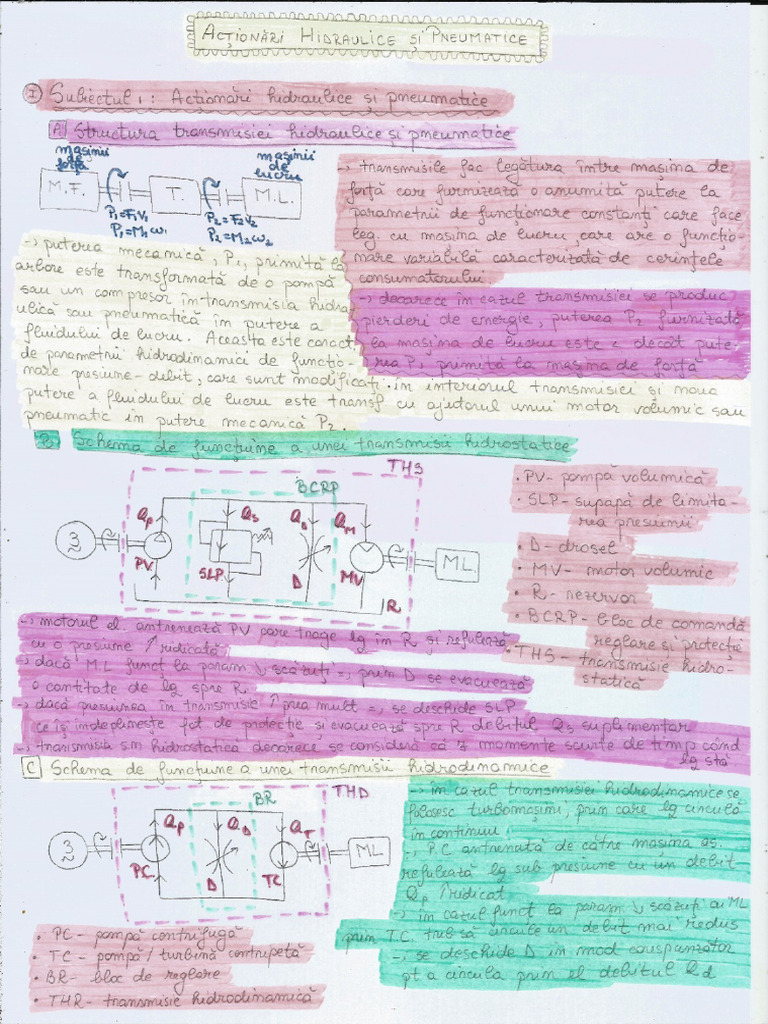 ACȚIONĂRI HIDRAULICE ȘI PNEUMATICE
I Subiectul 1: Acționări hidraulice și pneumatice
A Structura transmisiei hidraulice și pneumatice
mașinii de forță
mașinii de lucru
M.F. T. M.L.
P1=F1V1 P2=F2V2
P1=M1ω1 P2=M2ω2
→ transmisile fac legătura între mașina de
forță care furnizează o anumită putere la
parametrii de funcționare constanți care face
leg. cu masina de lucru, care are o funcțio-
nare variabilă caracterizată de cerințele
consumatorului
→ deoarece în cazul transmisiei se produc
pierderi de energie, puterea P2 furnizată
la mașina de lucru este < decât pute-
rea P1 primită la mașina de forță
→ puterea mecanică, P1, primită la
arbore este transformată de o pompă
sau un compresor în transmisia hidra
ulică sau pneumatică în putere a
fluidului de lucru. Aceasta este caract
de parametrii hidrodinamici de funcțio-
nare presiune-debit, care sunt modificați în interiorul transmisiei și noua
putere a fluidului de lucru este transf cu ajutorul unui motor volumic sau
pneumatic în putere mecanică P2.
B Schema de funcțiune a unei transmisii hidrostatice
THS
BCRP
Qp Qs QD QM
3 PV SLP D MV ML
R
• PV- pompă volumică
• SLP- supapă de limita-
rea presiunii
• D- drosel
• MV- motor volumic
• R- rezervor
• BCRP- bloc de comandă
reglare și protecție
• THS- transmisie hidro-
statică
→ motorul el. antrenează PV care trage lg în R și refulează
cu o presiune ↑ ridicată
→ dacă ML funcț la param ↓ scăzuți =, prin D se evacuează
o cantitate de lg spre R
→ dacă presiunea în transmisie ↑ prea mult =, se deschide SLP
ce îș îndeplinește fct de protecție și evacuează spre R debitul Qs suplimentar
→ transmisia s.m hidrostatică deoarece se consideră că Ǝ momente scurte de timp când
lg stă
C Schema de funcțiune a unei transmisii hidrodinamice
THD
BR
Qp QD QT
3 PC D TC ML
→ în cazul transmisiei hidrodinamice se
folosesc turbomașini, prin care lg circulă
în continuu
→ P.C antrenată de către masina as.
refulează lg sub presiune cu un debit
Qp ↑ ridicat
→ în cazul funcț la param. ↓ scăzuți cu ML
prin TC. treb să circule un debit mai redus
→ se deschide D în mod corespunzător
pt a circula prin el debitul Qd
• PC- pompă centrifugă
• TC- pompă/turbină centripetă
• BR- bloc de reglare
• THR- transmisie hidrodinamică